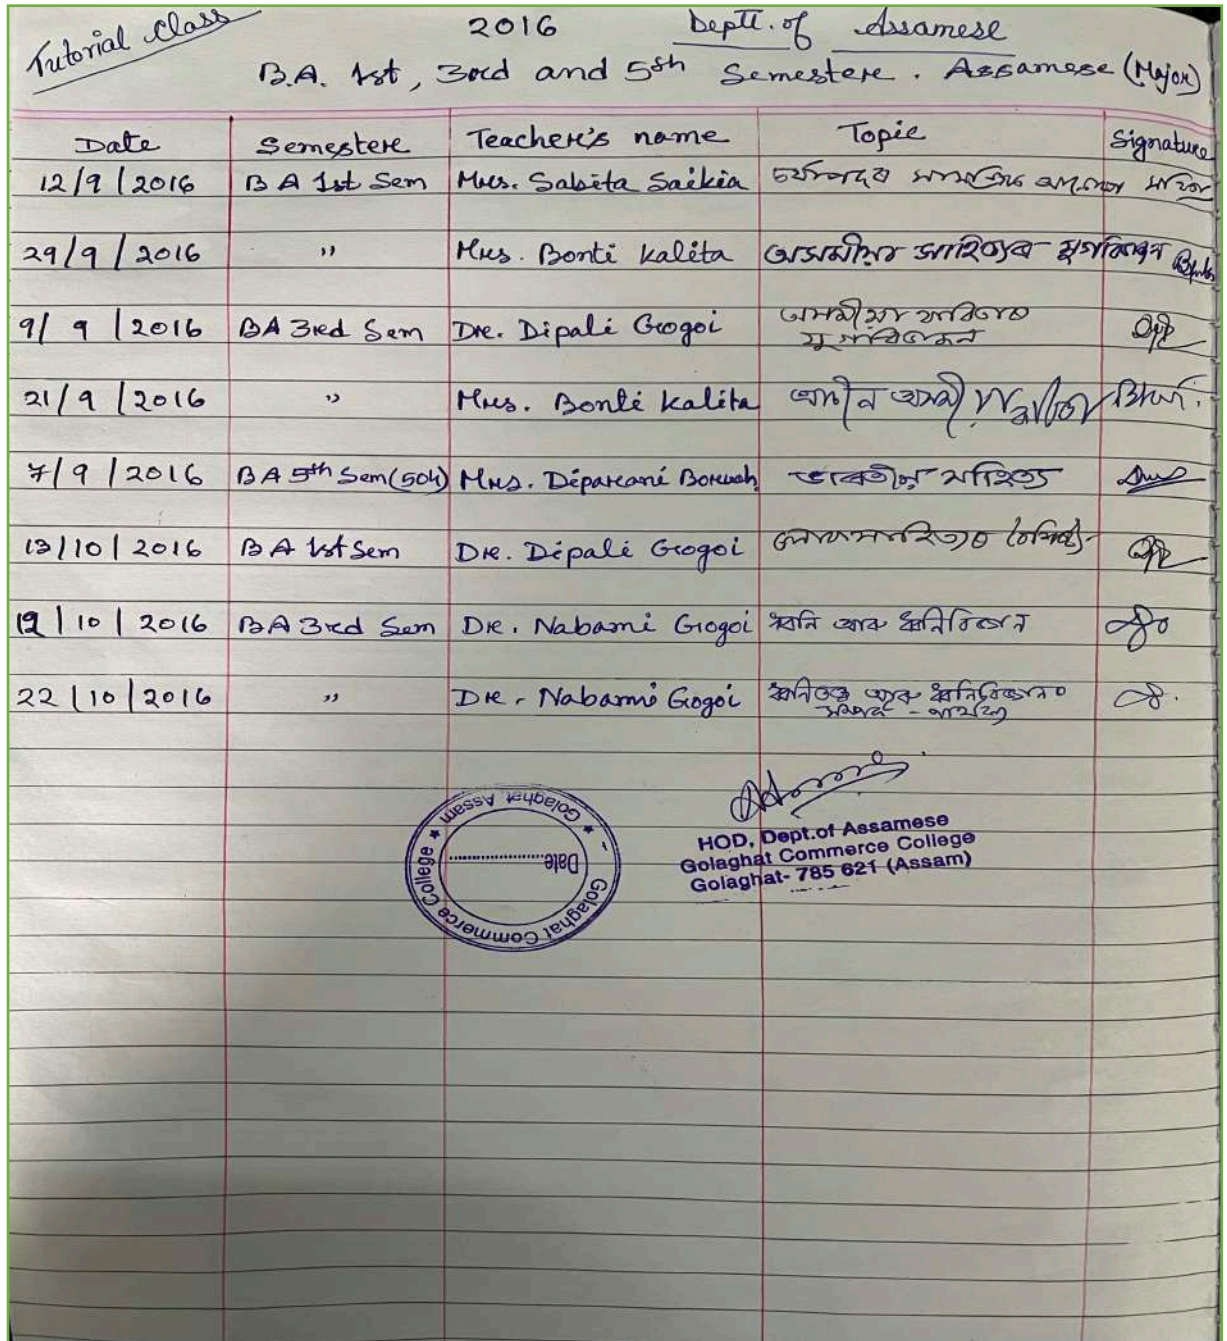 Tutorial Class 2016 Deptt. of Assamese
B.A. 1st, 3rd and 5th Semester. Assamese (Major)
Date Semester Teacher's name Topic Signature
12/9/2016 BA 1st Sem Mrs. Sabita Saikia চৰ্যাপদৰ
29/9/2016 " Mrs. Bonti Kalita অসমীয়া সাহিত্যৰ যুগবিভাজন
9/9/2016 BA 3rd Sem Dr. Dipali Gogoi অসমীয়া
যুগবিভাজন
21/9/2016 " Mrs. Bonti Kalita
7/9/2016 BA 5th Sem (504) Mrs. Diparani Boruah ভাৰতীয় সাহিত্য
13/10/2016 BA 1st Sem Dr. Dipali Gogoi লোকসাহিত্যৰ বৈশিষ্ট্য
19/10/2016 BA 3rd Sem Dr. Nabami Gogoi ধ্বনি আৰু ধ্বনিবিজ্ঞান
22/10/2016 " Dr. Nabami Gogoi ধ্বনিতত্ত্ব আৰু ধ্বনিবিজ্ঞানৰ
সম্পৰ্ক - পাৰ্থক্য
Golaghat Commerce College ★ Golaghat Assam ★
Date
HOD, Dept.of Assamese
Golaghat Commerce College
Golaghat- 785 621 (Assam)